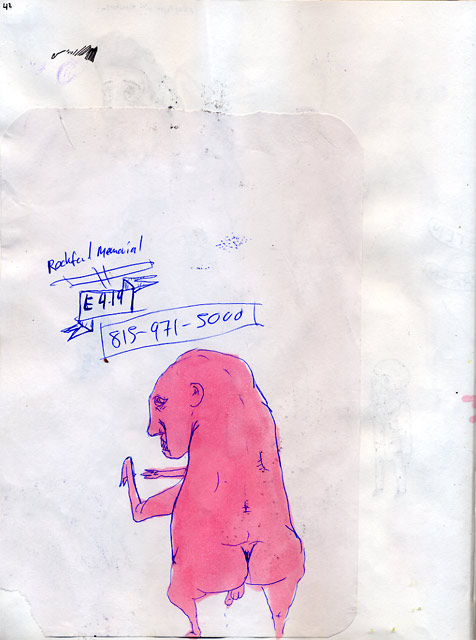 42
Rockford Memorial
E 414
815-971-5000